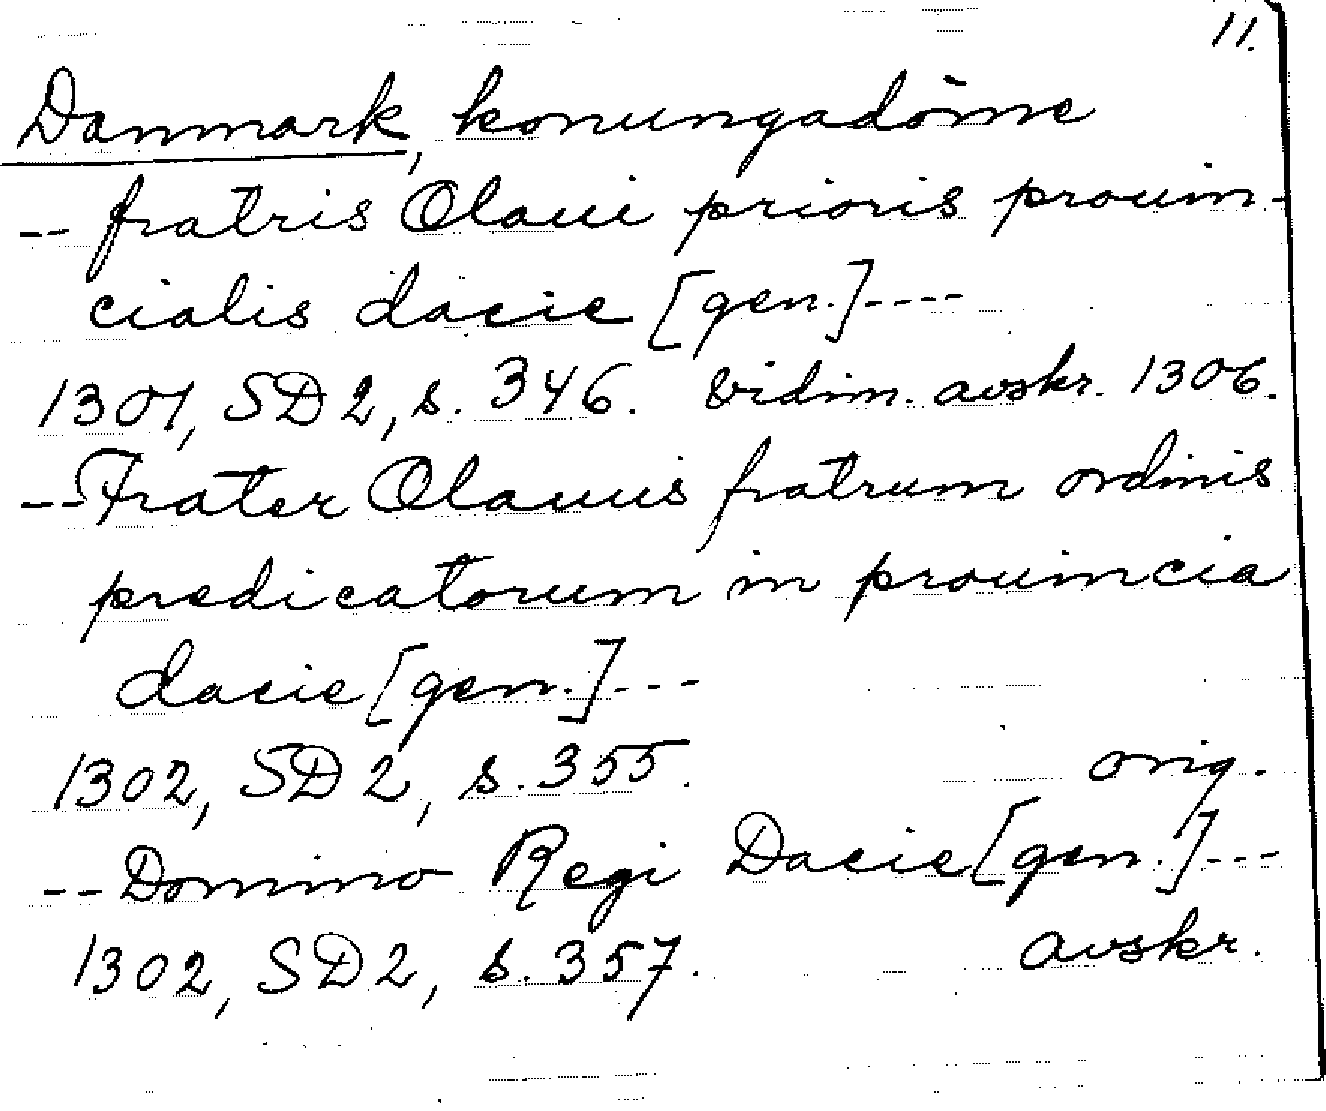 11.
Danmark, konungadöme
-- fratris Olaui prioris prouin-
cialis dacie [gen.]----
1301, SD2, s. 346. Vidim. avskr. 1306.
-- Frater Olauus fratrum ordinis
predicatorum in prouincia
dacie [gen.]---
1302, SD2, s. 355. orig.
-- Domino Regi Dacie [gen.]---
1302, SD2, s. 357. avskr.